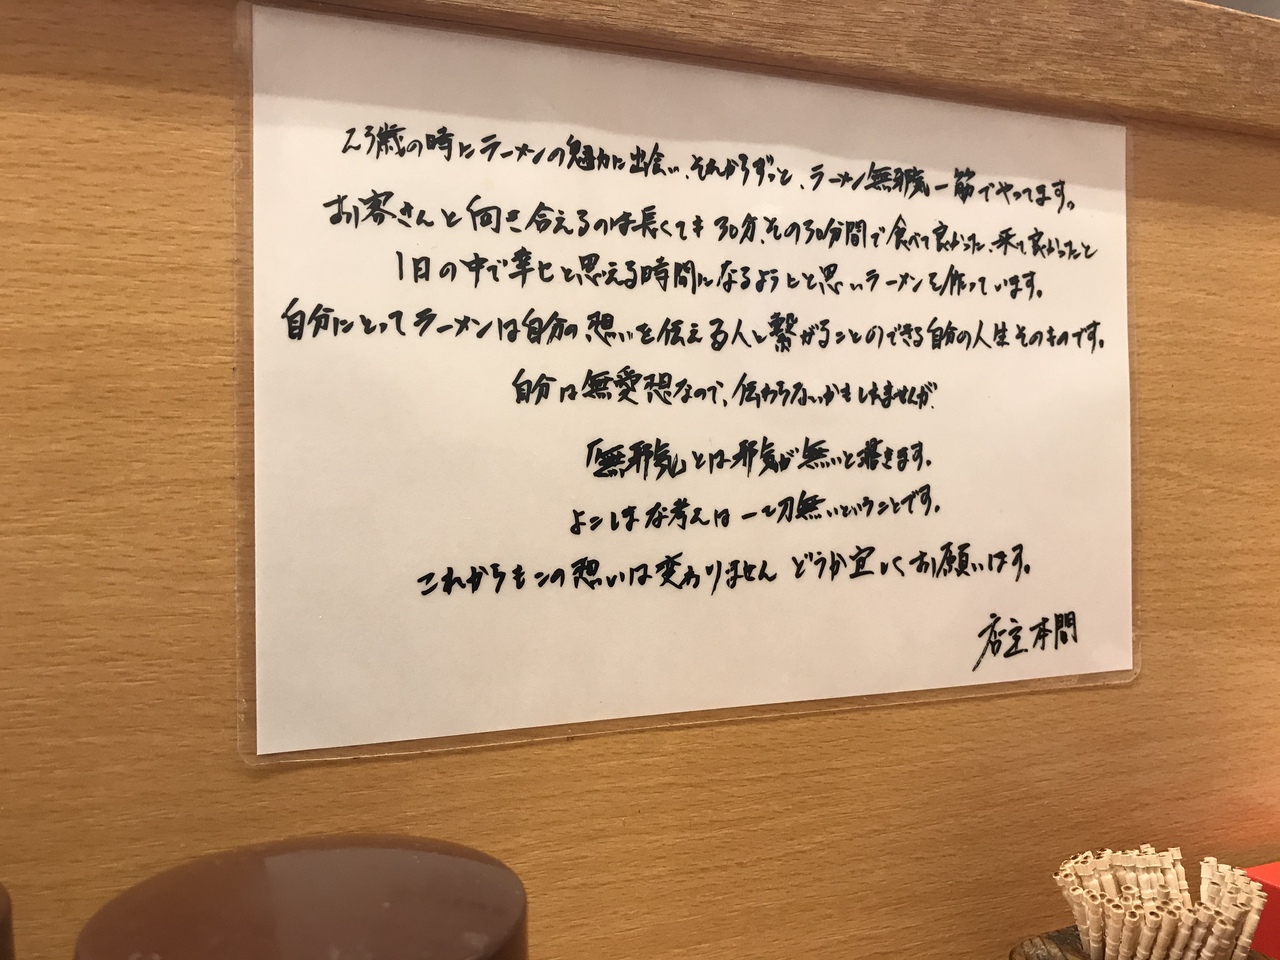 23歳の時にラーメンの魅力に出会い、それからずっと、ラーメン無邪気一筋でやってます。
お客さんと向き合えるのは長くても30分、その30分間で食べて良かった、来て良かったと
1日の中で幸せと思える時間になるようにと思いラーメンを作っています。
自分にとってラーメンは自分の想いを伝える人と繋がることのできる自分の人生そのものです。
自分は無愛想なので、伝わらないかもしれませんが、
「無邪気」とは邪気が無いと書きます。
よこしまな考えは一切無いということです。
これからもこの想いは変わりません どうか宜しくお願いします。
店主 本間